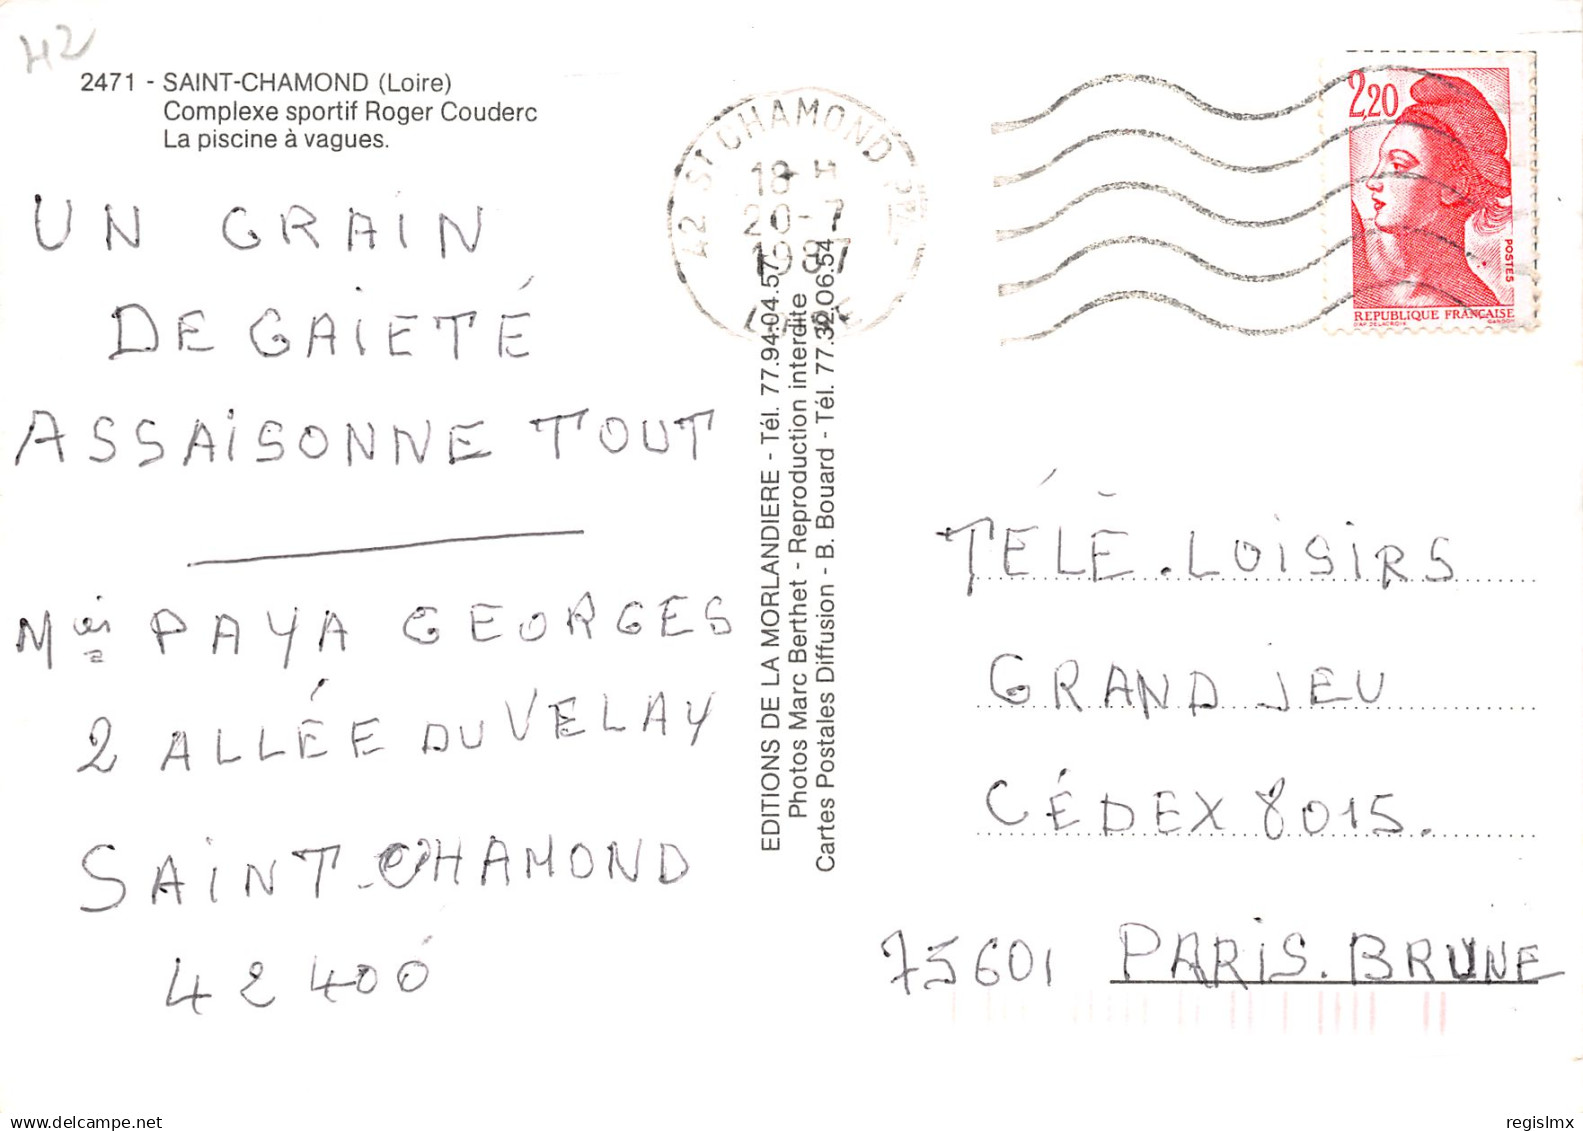 H2
2471 - SAINT-CHAMOND (Loire)
Complexe sportif Roger Couderc
La piscine à vagues.
UN GRAIN
DE GAIETÉ
ASSAISONNE TOUT
PAYA GEORGES
2 ALLÉE DU VELAY
SAINT-CHAMOND
42400
EDITIONS DE LA MORLANDIERE - Tél. 77.94.04.57
Photos Marc Berthet - Reproduction interdite
Cartes Postales Diffusion - B. Bouard - Tél. 77.32.06.54
42 St CHAMOND PAL
18 H
20-7
1987
LOIRE
2,20
POSTES
REPUBLIQUE FRANÇAISE
D'AP. DELACROIX GANDON
TÉLÉ.LOISIRS
GRAND JEU
CÉDEX 8015.
75601 PARIS.BRUNE
delcampe.net
regislmx